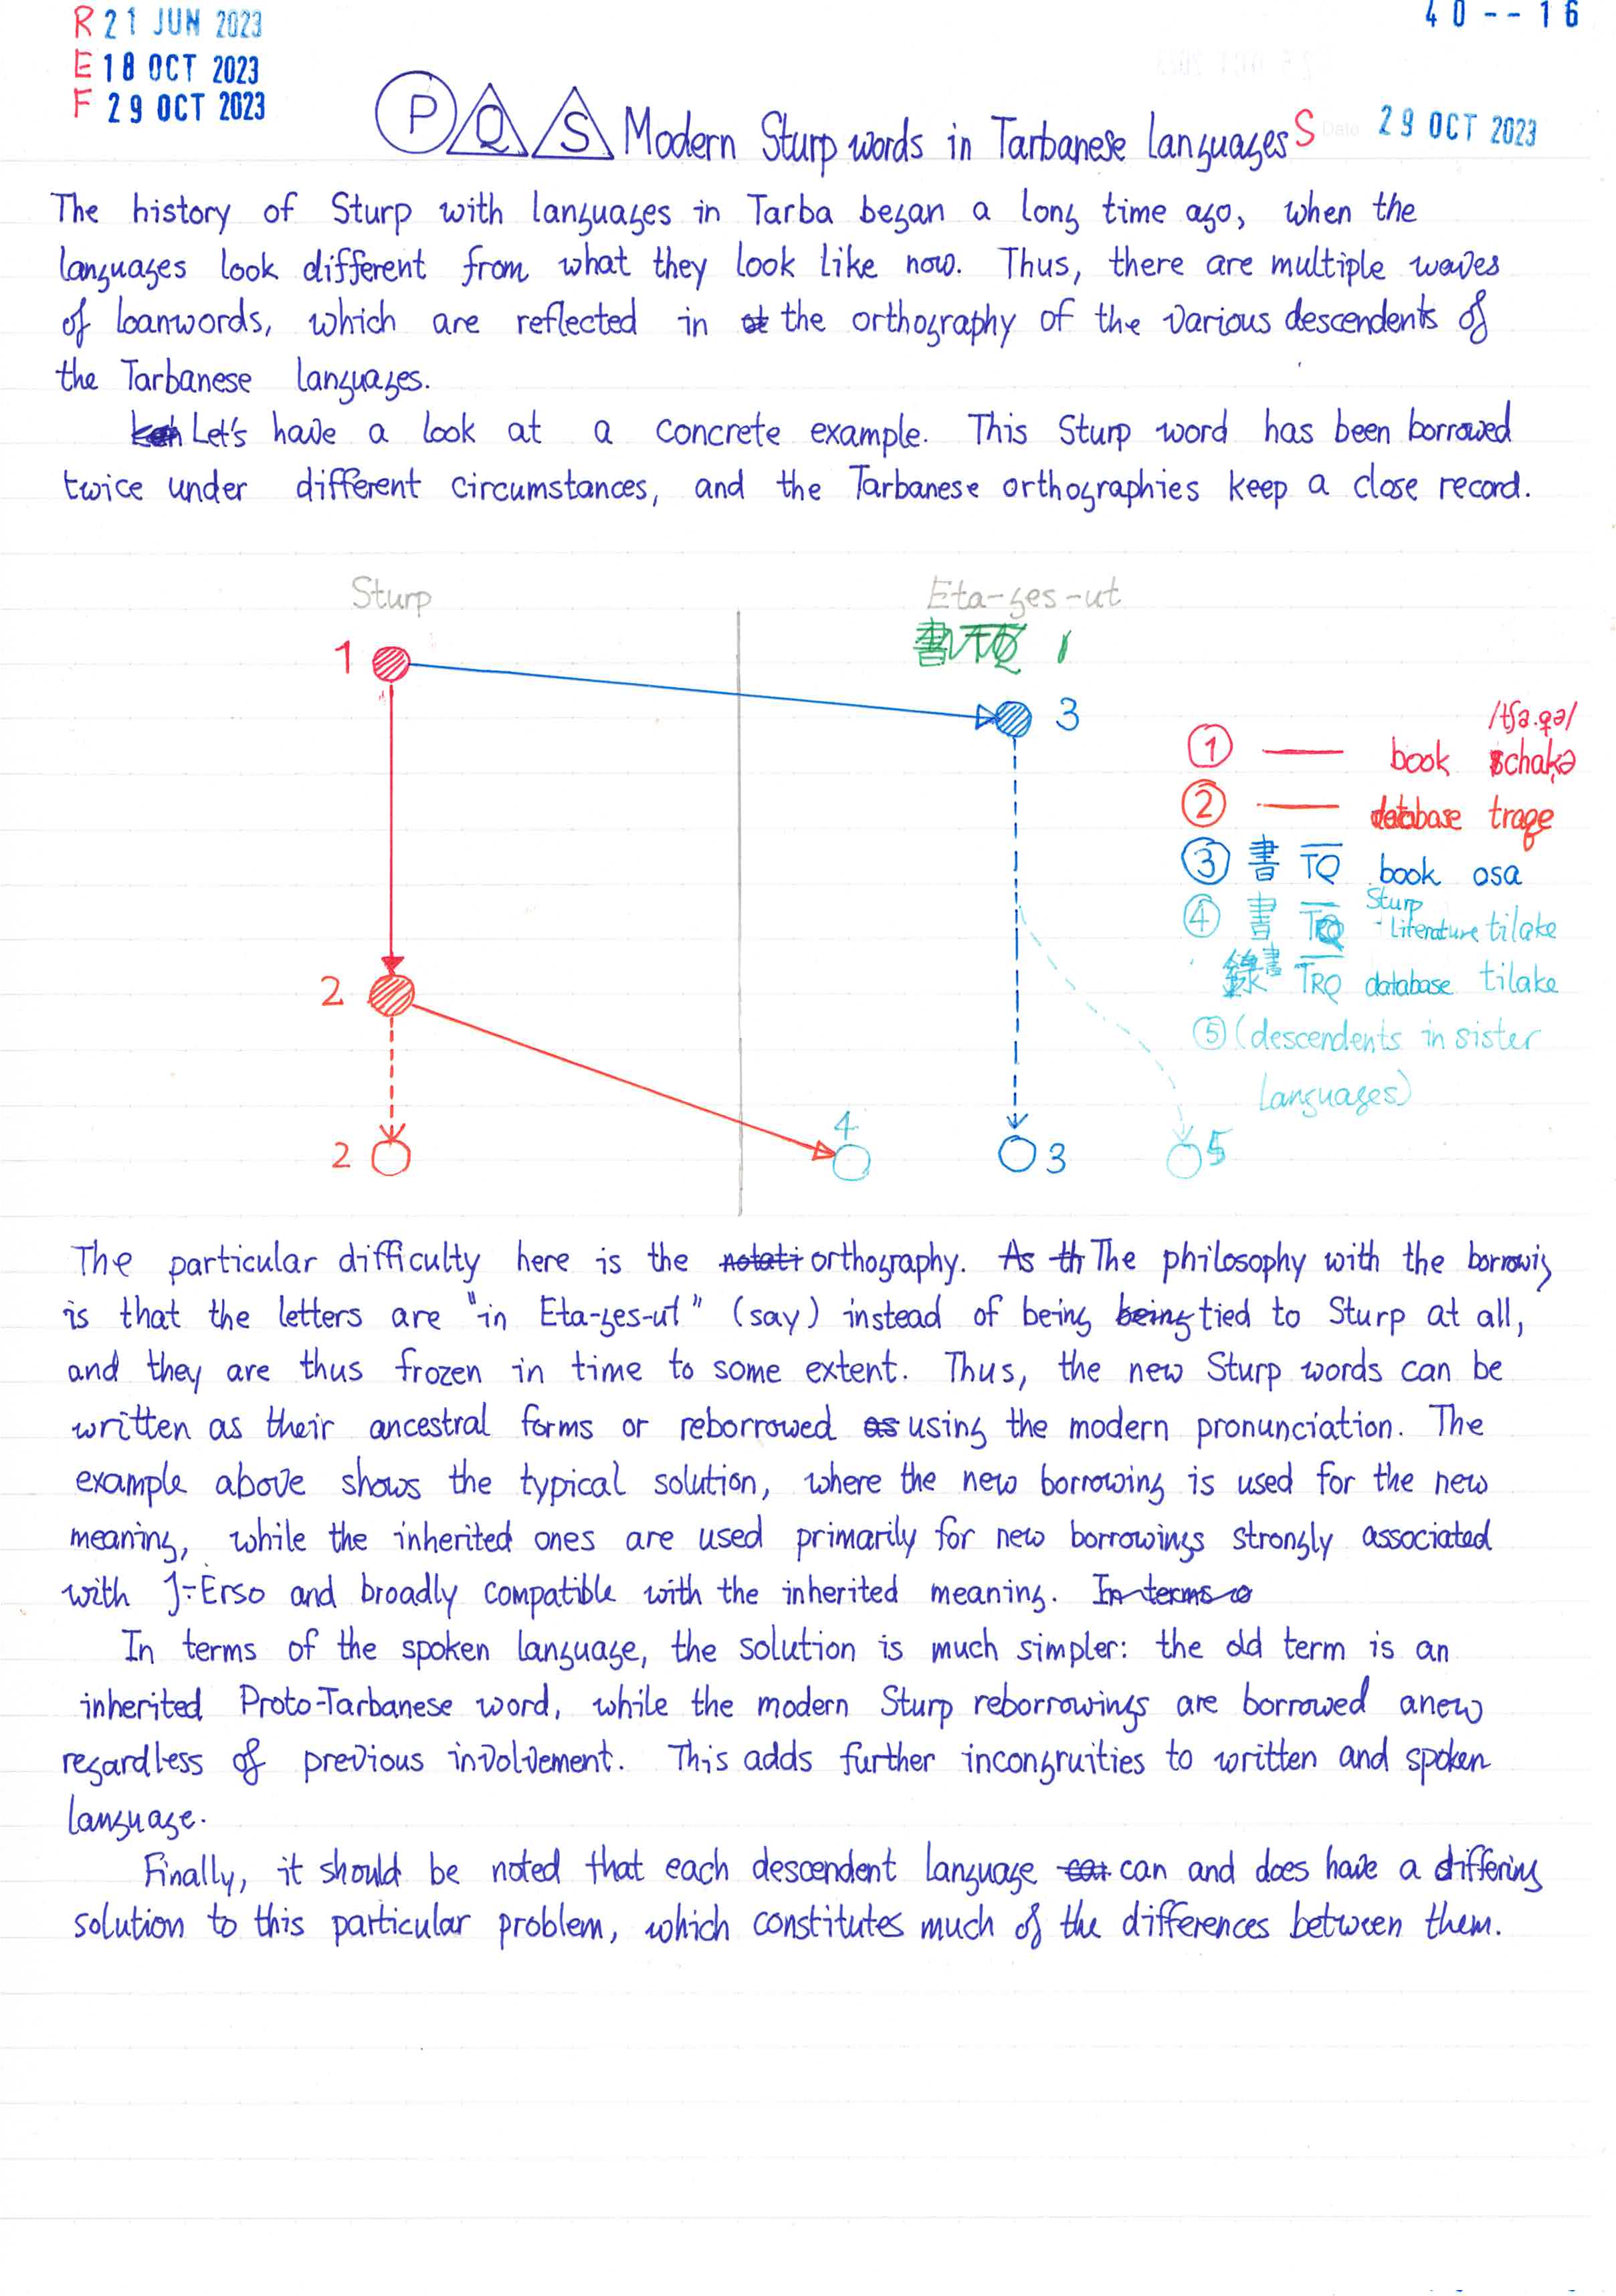 R 21 JUN 2023
E 18 OCT 2023
F 29 OCT 2023
40--16
P Q S Modern Sturp words in Tarbanese languages S 29 OCT 2023
The history of Sturp with languages in Tarba began a long time ago, when the
languages look different from what they look like now. Thus, there are multiple waves
of loanwords, which are reflected in the orthography of the various descendents of
the Tarbanese languages.
Let's have a look at a concrete example. This Sturp word has been borrowed
twice under different circumstances, and the Tarbanese orthographies keep a close record.
Sturp
Eta-ges-ut
1
3
2
2
4
3
5
/tʃa.qə/
① — book chaķə
② — database traqe
③ 書 TQ book osa
④ 書 TRQ Sturp Literature tilake
錄書 TRQ database tilake
⑤ (descendents in sister
languages)
The particular difficulty here is the notati orthography. As th The philosophy with the borrowig
is that the letters are "in Eta-ges-ut" (say) instead of being being tied to Sturp at all,
and they are thus frozen in time to some extent. Thus, the new Sturp words can be
written as their ancestral forms or reborrowed as using the modern pronunciation. The
example above shows the typical solution, where the new borrowing is used for the new
meaning, while the inherited ones are used primarily for new borrowings strongly associated
with J-Erso and broadly compatible with the inherited meaning. In terms o
In terms of the spoken language, the solution is much simpler: the old term is an
inherited Proto-Tarbanese word, while the modern Sturp reborrowings are borrowed anew
regardless of previous involvement. This adds further incongruities to written and spoken
language.
Finally, it should be noted that each descendent language can and does have a differing
solution to this particular problem, which constitutes much of the differences between them.